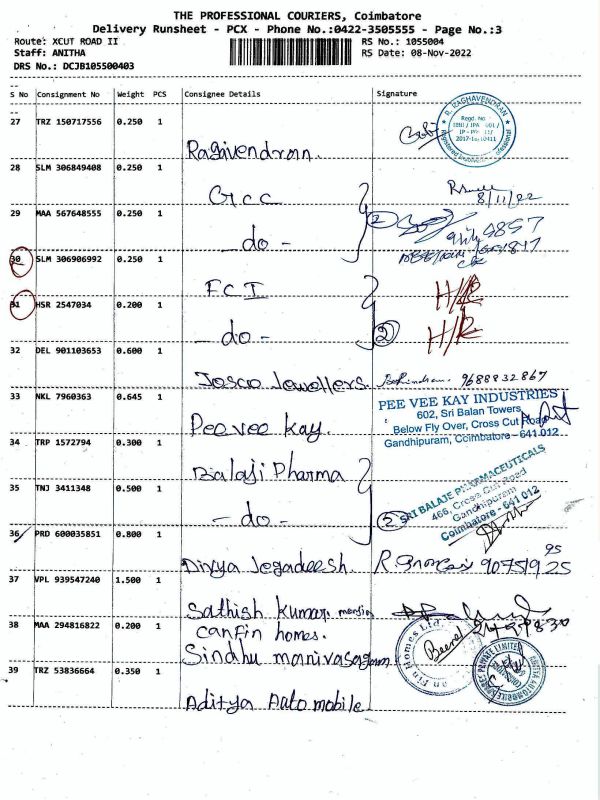 THE PROFESSIONAL COURIERS, Coimbatore
Delivery Runsheet - PCX - Phone No.:0422-3505555 - Page No.:3
Route: XCUT ROAD II RS No.: 1055004
Staff: ANITHA RS Date: 08-Nov-2022
DRS No.: DCJB105500403
S No Consignment No Weight PCS Consignee Details Signature
27 TRZ 150717556 0.250 1
R. RAGHAVENDRAN
Regd. No
Ragivendran.
28 SLM 306849408 0.250 1
Gcc
8/11/22
29 MAA 567648555 0.250 1
- do - 2
30 SLM 306906992 0.250 1
FCI H/R
31 HSR 2547034 0.200 1
- do - 2 H/R
32 DEL 901103653 0.600 1
Joscο Jewellers. 9688832867
33 NKL 7960363 0.645 1
PEE VEE KAY INDUSTRIES
602, Sri Balan Towers,
Below Fly Over, Cross Cut Road
Gandhipuram, Coimbatore - 641 012
Pee vee kay.
34 TRP 1572794 0.300 1
Balaji Pharma
35 TNJ 3411348 0.500 1
- do - 2
SRI BALAJE PHARMACEUTICALS
466, Cross Cut Road
Gandhipuram
Coimbatore - 641 012
36 PRD 600035851 0.800 1
Divya Jegadeesh.
37 VPL 939547240 1.500 1
Sathish Kumar
38 MAA 294816822 0.200 1
canfin homes.
Sindhu manivasagam.
39 TRZ 53836664 0.350 1
Aditya Auto mobile